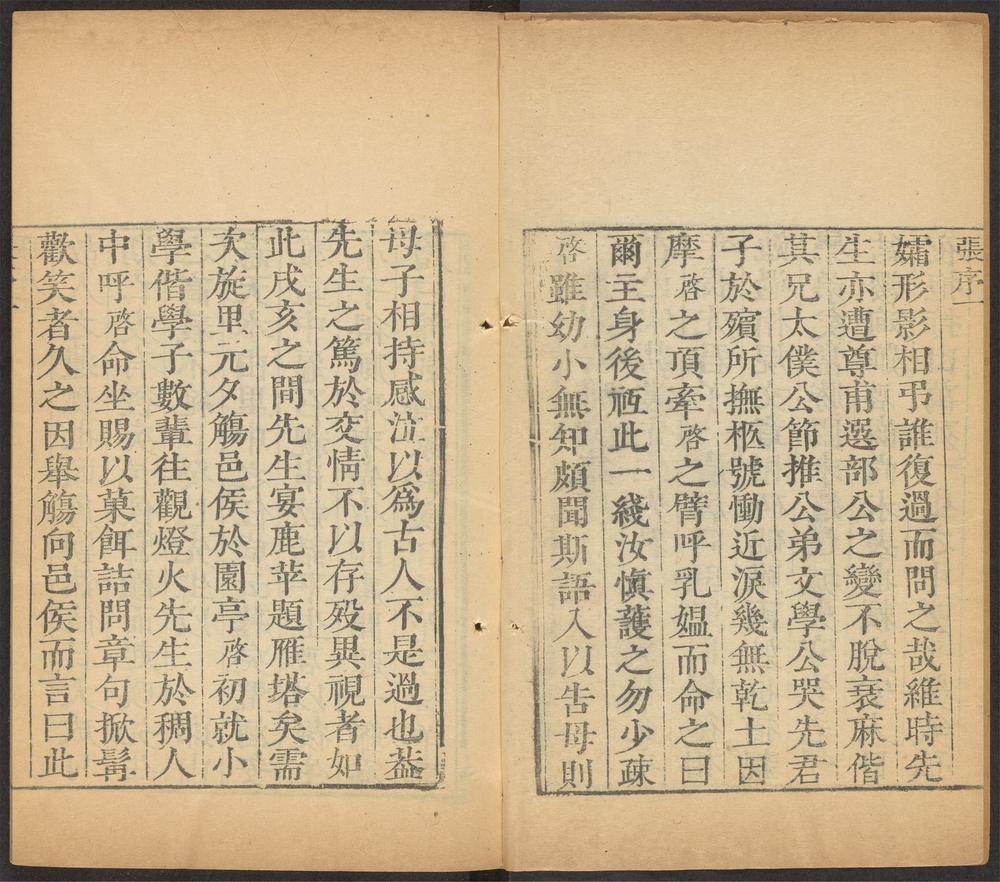 張序一
孀形影相弔誰復過而問之哉維時先
生亦遭尊甫選部公之變不脫衰麻偕
其兄太僕公節推公弟文學公哭先君
子於殯所撫柩號慟近淚幾無乾土因
摩啓之頂牽啓之臂呼乳媼而命之曰
爾主身後祗此一綫汝慎護之勿少疎
啓雖幼小無知頗聞斯語入以告母則
母子相持感泣以爲古人不是過也葢
先生之篤於交情不以存歿異視者如
此戌亥之間先生宴鹿苹題雁塔矣需
次旋里元夕觴邑矦於園亭啓初就小
學偕學子數輩往觀燈火先生於稠人
中呼啓命坐賜以菓餌詰問章句掀髯
歡笑者久之因舉觴向邑矦而言曰此